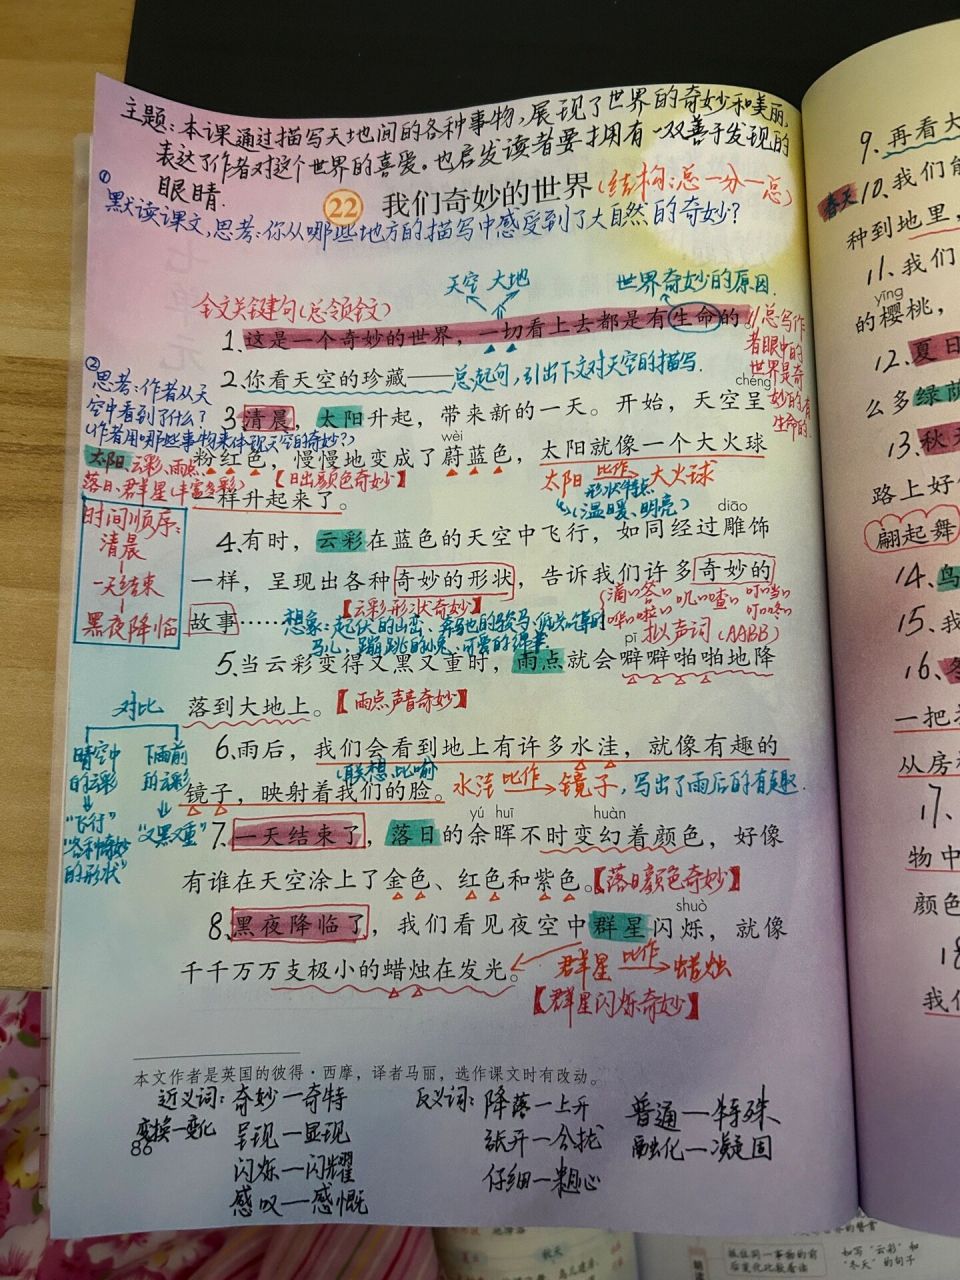 主题:本课通过描写天地间的各种事物,展现了世界的奇妙和美丽,
表达了作者对这个世界的喜爱。也启发读者要拥有一双善于发现的
眼睛.
22 我们奇妙的世界(结构:总一分一总)
①
默读课文,思考:你从哪些地方的描写中感受到了大自然的奇妙?
天空 大地
世界奇妙的原因.
全文关键句(总领全文)
1、这是一个奇妙的世界,一切看上去都是有生命的。
总写作
者眼中的
世界是奇
妙的,有
生命的.
2、你看天空的珍藏——总起句,引出下文对天空的描写.
②
思考:作者从天
空中看到了什么?
(作者用哪些事物来体现天空的奇妙?)
太阳、云彩、雨点、
落日、群星(丰富多彩)
chéng
3、清晨,太阳升起,带来新的一天。开始,天空呈
wèi
粉红色,慢慢地变成了蔚蓝色,太阳就像一个大火球
【日出颜色奇妙】
太阳 比作 大火球
形状特点
(温暖、明亮)
一样升起来了。
时间顺序:
清晨
一天结束
黑夜降临
diāo
4、有时,云彩在蓝色的天空中飞行,如同经过雕饰
一样,呈现出各种奇妙的形状,告诉我们许多奇妙的
故事……
【云彩形状奇妙】
想象:起伏的山峦、奔驰的骏马、
拟声词(AABB)
pī
5、当云彩变得又黑又重时,雨点就会噼噼啪啪地降
落到大地上。【雨点声音奇妙】
对比
晴空中
的云彩
"飞行"
"各种奇妙
的形状"
下雨前
的云彩
"又黑又重"
6、雨后,我们会看到地上有许多水洼,就像有趣的
联想、比喻
镜子,映射着我们的脸。水洼 比作 镜子,写出了雨后的有趣.
yú huī huàn
7、一天结束了,落日的余晖不时变幻着颜色,好像
有谁在天空涂上了金色、红色和紫色。【落日颜色奇妙】
shuò
8、黑夜降临了,我们看见夜空中群星闪烁,就像
千千万万支极小的蜡烛在发光。群星 比作 蜡烛
【群星闪烁奇妙】
本文作者是英国的彼得·西摩,译者马丽,选作课文时有改动。
近义词:奇妙一奇特
变换一变化
呈现一显现
闪烁一闪耀
感叹一感慨
反义词:降落一上升
张开一合拢
仔细一粗心
普通一特殊
融化一凝固
86
9、再看大
春天
10、我们能
种到地里,
11、我们
yīng
的樱桃,
12、夏日
么多绿荫
13、秋天
路上好
翩起舞
14、鸟
15、我
16、冬
一把
从房
17、
物中
颜色
18
我们
抓住同一事物的前
后变化比较着读
如写"云彩"和
"冬天"的句子